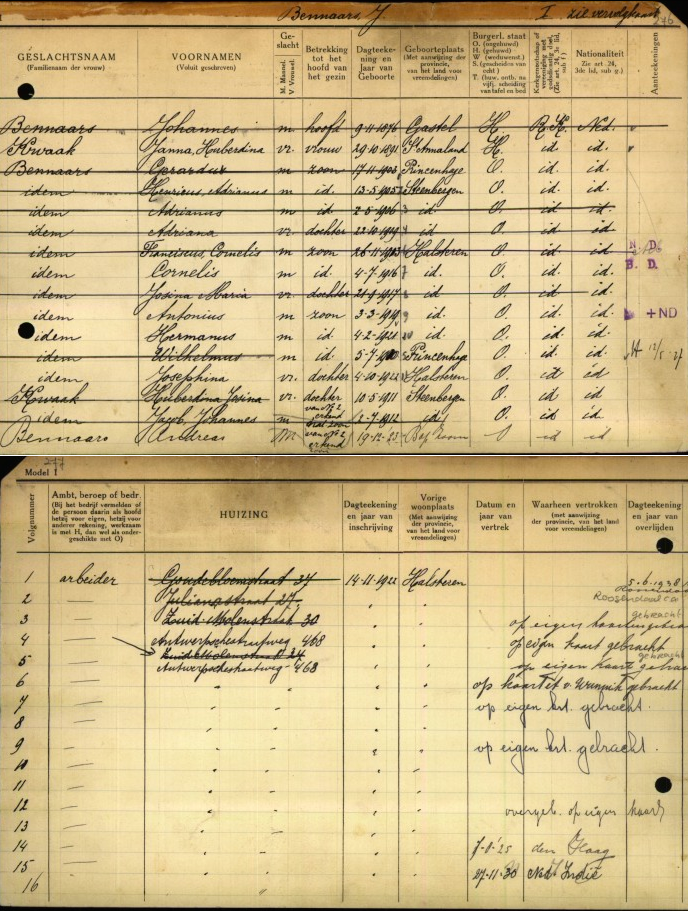 Bennaars, J. I. zie vervolgkaart 276
GESLACHTSNAAM (Familienaam der vrouw) VOORNAMEN (Voluit geschreven) Geslacht M. Mannel. V. Vrouwel. Betrekking tot het hoofd van het gezin Dagteekening en Jaar van Geboorte Geboorteplaats (Met aanwijzing der provincie, van het land voor vreemdelingen) Burgerl. staat O. (ongehuwd) H. (gehuwd) W. (weduwenst.) S. (gescheiden van echt) T. (huw. ontb. na vijfj. scheiding van tafel en bed Nationaliteit Zie art. 24, 3de lid, sub g.) Aanteekeningen
Bennaars Johannes m. hoofd 9-11-1876 Gastel H. R.K. Ned.
Kwaak Janna, Huberdina vr. vrouw 29-10-1891 St. Annaland H. id. id.
Bennaars Gerardus m zoon 17-11-1903 Princenhage O. id. id.
idem Henricus, Adrianus m id. 13-5-1905 Steenbergen O. id. id.
idem Adrianus m id. 2-5-1906 id. O. id. id.
idem Adriana vr. dochter 23-10-1909 id. O. id. id.
idem Franciscus, Cornelis m zoon 26-11-1913 Halsteren O. id. id. N. D.
idem Cornelis m id. 4-7-1916 id. O. id. id. B. D.
idem Josina Maria vr. dochter 21-9-1917 id. O. id. id.
idem Antonius m zoon 3-3-1919 id. O. id. id. + ND
idem Hermanus m id. 4-2-1921 id. O. id. id.
idem Wilhelmus m id. 5-7 Princenhage O. id. id. 12/5-27
idem Josephina vr. dochter 4-10-1922 Halsteren O. id. id.
Kwaak Huberdina Jesina vr. dochter van No 2 erkend 10-5-1911 Steenbergen O. id. id.
idem Jacob, Johannes m. zoon van No 2 erkend 2-7-1912 id. O. id. id.
Bennaars Andreas M. 19-12-'23 id id
Model I 277
Volgnummer Ambt, beroep of bedr. (Bij het bedrijf vermelden of de persoon daarin als hoofd hetzij voor eigen, hetzij voor anderer rekening, werkzaam is met H, dan wel als ondergeschikte met O) HUIZING Dagteekening en jaar van inschrijving Vorige woonplaats (Met aanwijzing der provincie, van het land voor vreemdelingen) Datum en jaar van vertrek Waarheen vertrokken (met aanwijzing der provincie, van het land voor vreemdelingen) Dagteekening en jaar van overlijden
1 arbeider Goudebloemstraat 37 14-11-1922 Halsteren 5-6-1938
2 Julianastraat 27. " " Roosendaal
3 Zuid-Molenstraat 30 " " op eigen gebracht
4 Antwerpschestraatweg 468 " " op eigen kaart gebracht
5 Zuid Molenstraat 34 " " op eigen kaart gebracht
Antwerpschestraatweg - 468
6 " " " " op kaart gebracht
7 " " " " op eigen krt. gebracht.
8 " " " "
9 " " " " op eigen krt. gebracht.
10 " " " "
11 " " " "
12 " " " " overgeb. op eigen kaart
13 " " " "
14 " " " " 7-8-'25 den Haag
15 " " " " 27-11-30 Ned. Indië
16 "